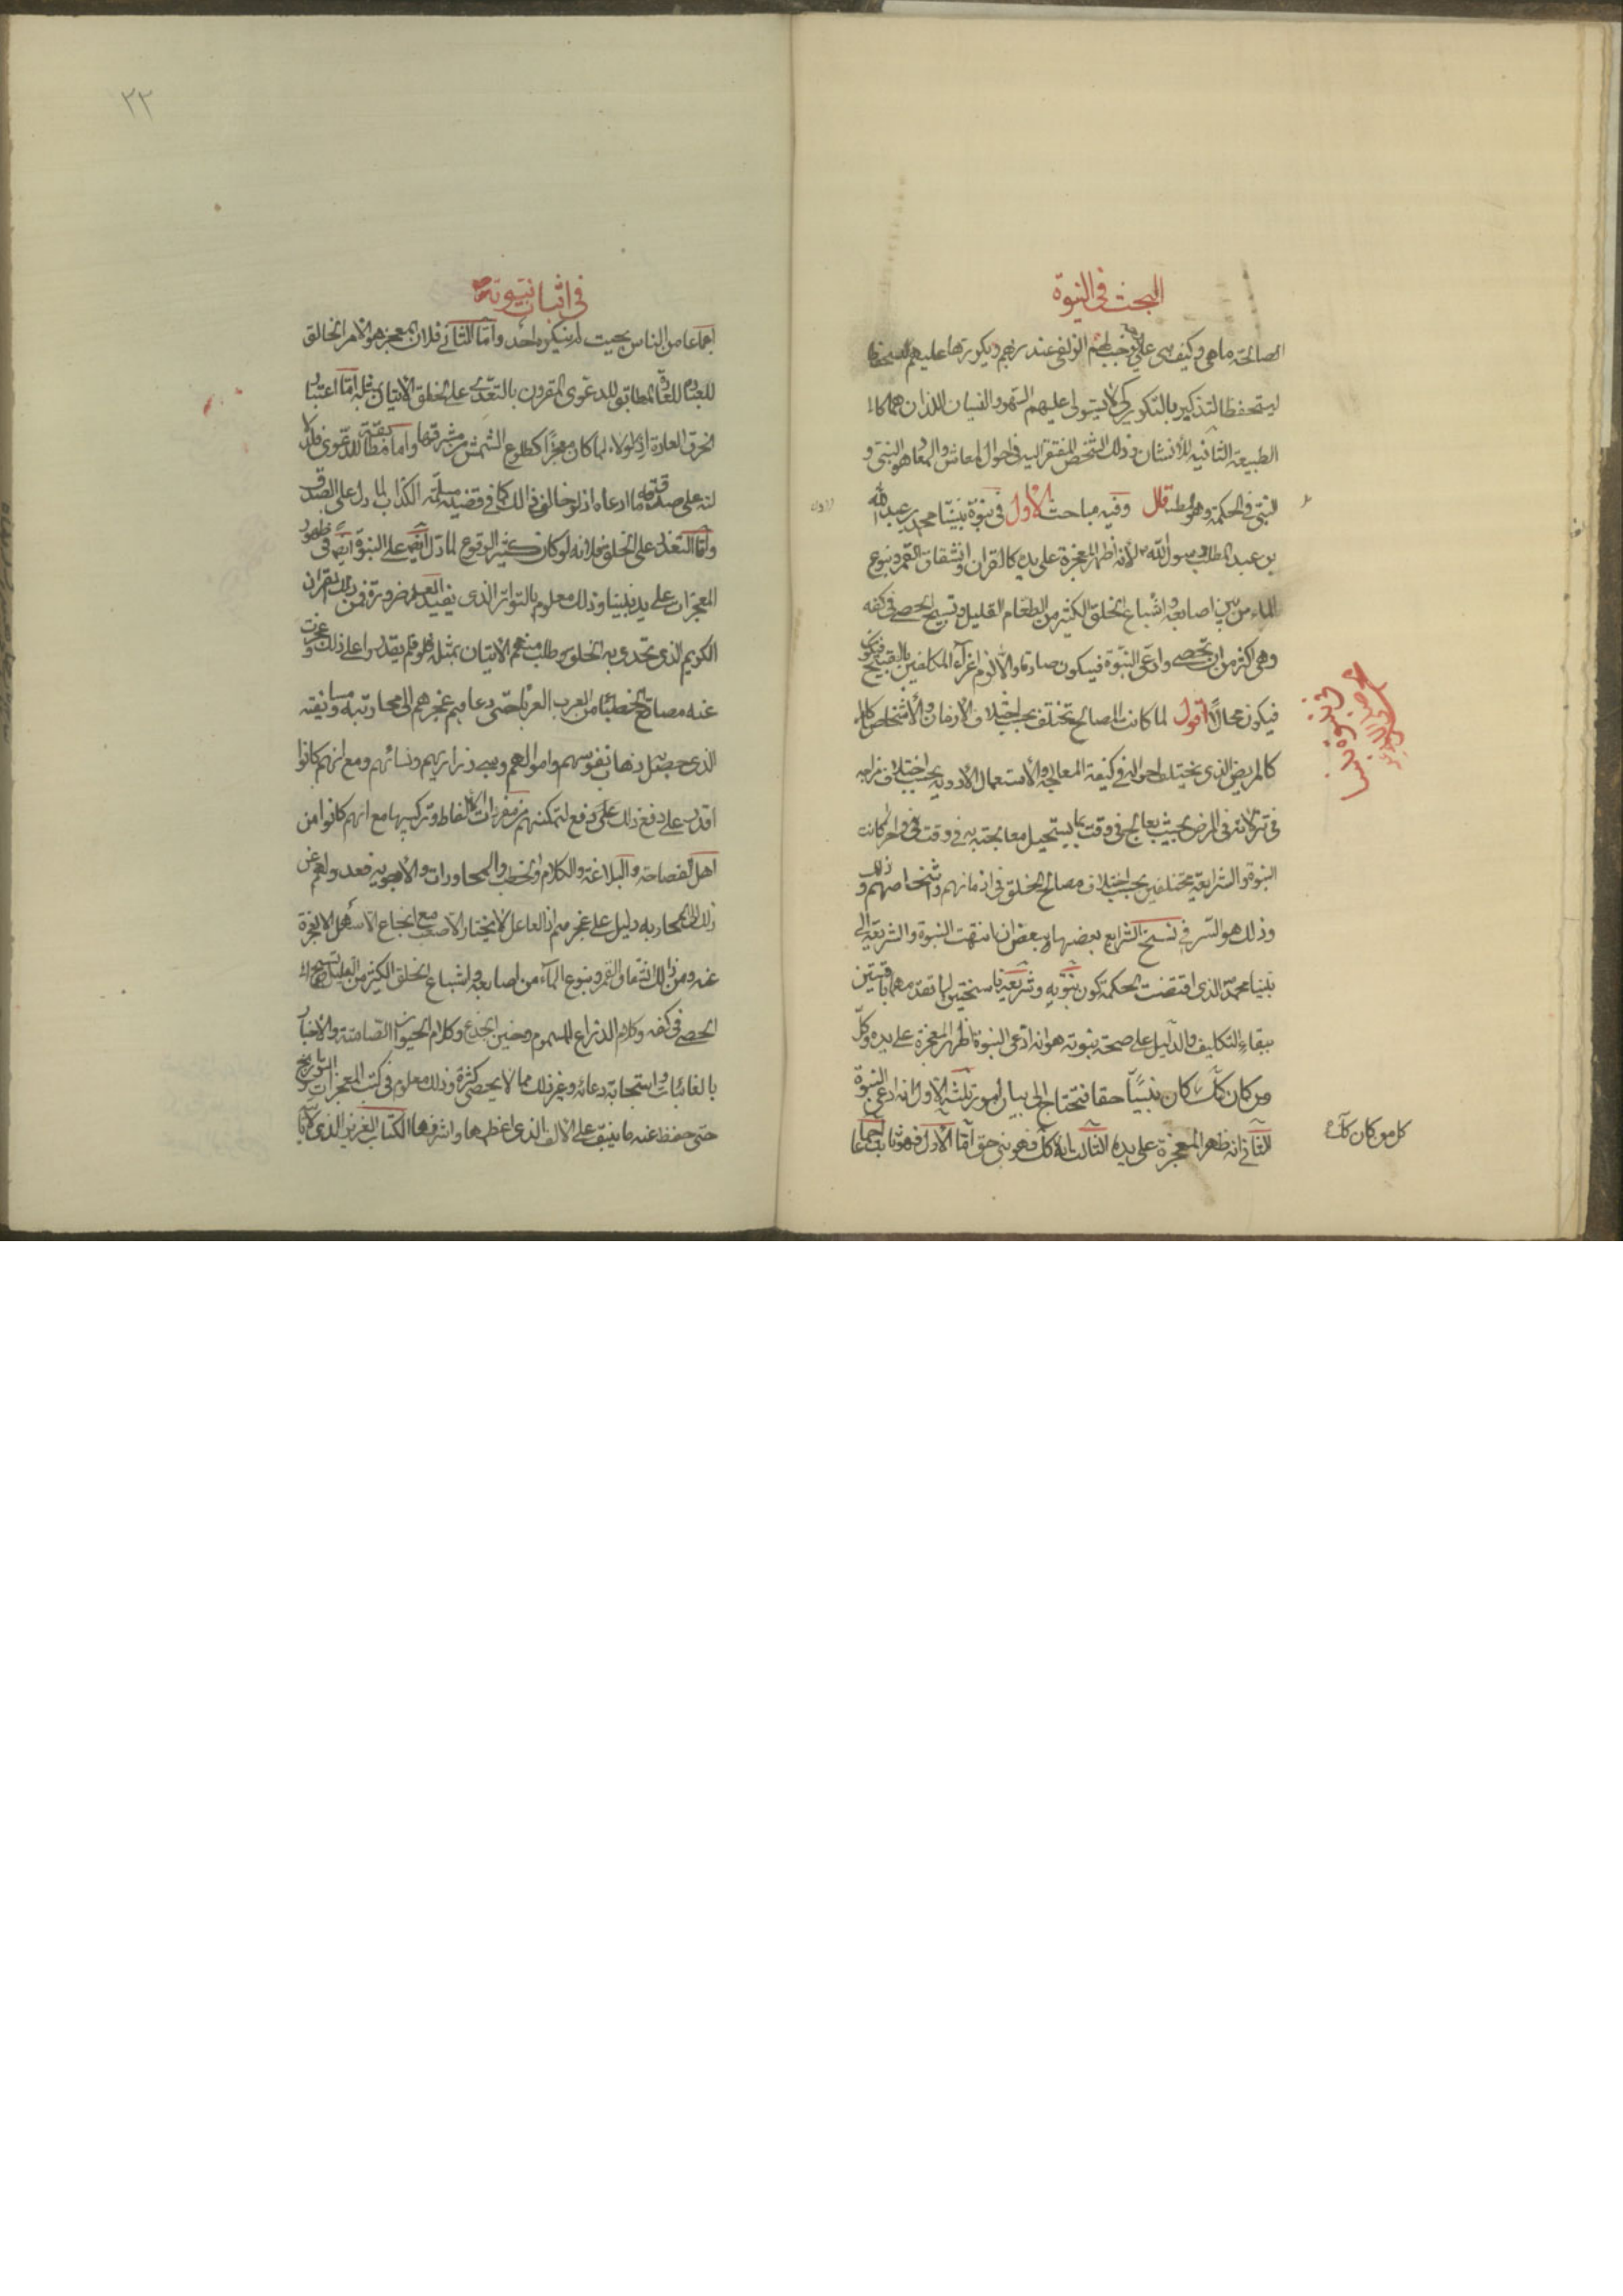 البحث فی النبوة
الصالحة ما هی وکیف هی علی وجه یوجب لهم الزلفی عند ربهم ویکررها علیهم لیستحفظ
لیستحفظ التذکیر بالتکریر کی لا یستولی علیهم السهو والنسیان اللذان هما کا
الطبیعة الثانیة للانسان وذلک الشخص المفتقر الیه فی احوال المعاش والمعاد هو النبی و
النبی فی الحکمة وهو المطلوب قال وفیه مباحث الاول فی نبوة نبینا محمد بن عبدالله
بن عبدالمطلب رسول الله لانه اظهر المعجزة علی یده کالقران وانشقاق القمر ونبوع
الماء من بین اصابعه واشباع الخلق الکثیر من الطعام القلیل وتسبیح الحصی فی کفه
وهی اکثر من ان تحصی وادعی النبوة فیکون صادقا والا لزم اغراء المکلفین بالقبیح فیکون
فیکون محالا اقول لما کانت المصالح تختلف بحسب اختلاف الازمان والاشخاص کالمر
کالمریض الذی یختلف احواله فی کیفیة المعالجة والاستعمال الادویة بحسب اختلاف مزاجه
فی تزلاته فی المرض بحیث یعالج فی وقت بما یستحیل معالجته به فی وقت اخر کانت
النبوة والشریعة مختلفین بحسب اختلاف مصالح الخلق فی ازمانهم واشخاصهم وذلک
وذلک هو السر فی نسخ الشرایع بعضها ببعض ان انتهت النبوة والشریعة الی
نبینا محمد الذی اقتضت الحکمة کون نبوته وشریعته ناسختین لما تقدمهما باقیتین
ببقاء التکلیف والدلیل علی صحة نبوته هو انه ادعی النبوة وظهر المعجزة علی یده وکل
من کان کک کان نبیا حقا فنحتاج الی بیان امور ثلثة الاول انه ادعی النبوة
الثانی انه ظهر المعجزة علی یده الثالث انه کک فهو نبی حق اما الاول فهو ثابت اجماعا
کل من کان کک
فی اثبات نبوته
اجماعا من الناس بحیث لم ینکره احد واما الثانی فلان المعجز هو الامر الخالق
للعادة المطابق للدعوی المقرون بالتحدی علی الخلق الاتیان بمثله اما اعتبار
الخرق العادة اذ لولاه لما کان معجزا کطلوع الشمس من مشرقها واما مطابقته للدعوی فلد
لته علی صدقه ما ادعاه اذ لو خالف ذالک کما فی قضیة مسیلمة الکذاب لما دل علی الصدق
واما التعذر علی الخلق فلانه لو کان کثیر الوقوع لما دل ایضا علی النبوة ایضا فی ظهور
المعجزات علی ید نبینا وذلک معلوم بالتواتر الذی یفید العلم ضرورة فمن ذلک القران
الکریم الذی تحدی به الخلق وطلب منهم الاتیان بمثله فلم یقدروا علی ذلک وعجزت
عنه مصاقع الخطباء من العرب العرباء حتی دعاهم عجزهم الی محاربته ومسایفته
الذی حصل ذهاب نفوسهم واموالهم وسبی ذراریهم ونسائهم ومع انهم کانوا
اقدر علی دفع ذلک لتمکنهم من مفردات الالفاظ وترکیبها مع انهم کانوا من
اهل الفصاحة والبلاغة والکلام والخطب والمحاورات والاجوبة فعدولهم عن
ذلک الی المحاربة دلیل علی عجزهم اذ العاقل لا یختار الاصعب مع انجاع الاسهل الا لعجزه
عنه ومن ذالک انشقاق القمر ونبوع الماء من اصابعه واشباع الخلق الکثیر من القلیل وتسبیح
الحصی فی کفه وکلام الذراع المسموم وحنین الجذع وکلام الحیوان الصامتة والاخبار
بالغائبات واستجابة دعائه وغیر ذلک مما لا یحصی کثرة وذلک معلوم فی کتب المعجزات والتواریخ
حتی حفظ عنه ما ینیف علی الالف الذی اعظمها واشرفها الکتاب العزیز الذی لا
٢٢